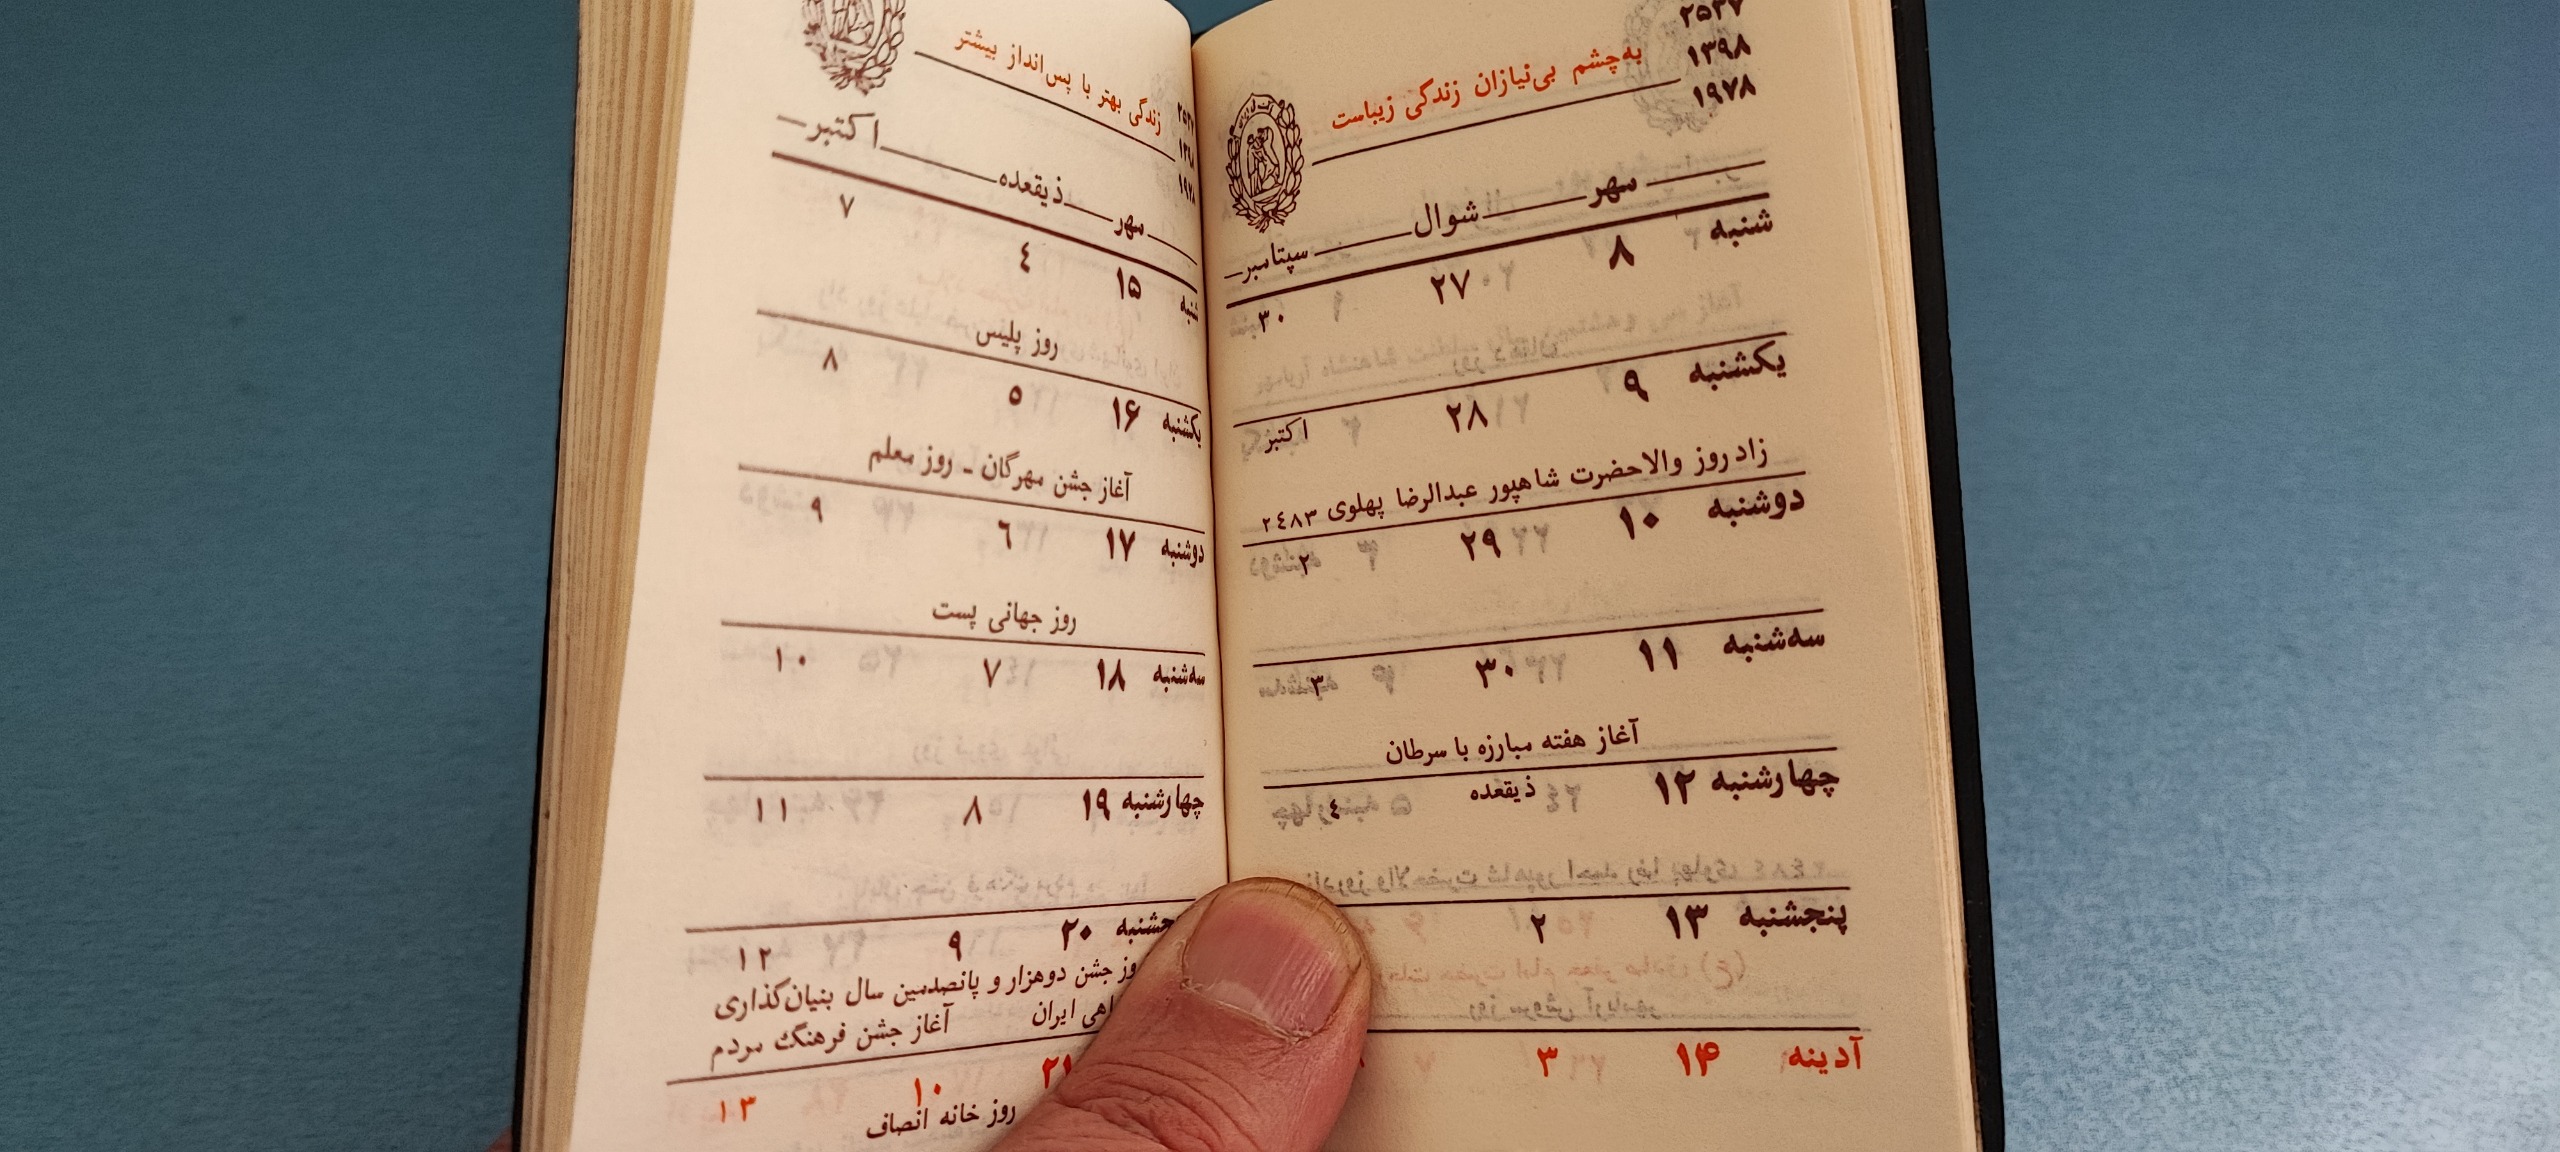 ۲۵۳۷
۱۳۹۸
۱۹۷۸
به‌چشم بی‌نیازان زندگی زیباست
مهر شوال سپتامبر
شنبه ۸ ۲۷ ۳۰
یکشنبه ۹ ۲۸ اکتبر
زادروز والاحضرت شاهپور عبدالرضا پهلوی ۲٤۸۳
دوشنبه ۱۰ ۲۹ ۲
سه‌شنبه ۱۱ ۳۰ ۳
آغاز هفته مبارزه با سرطان
چهارشنبه ۱۲ ذیقعده ٤
پنجشنبه ۱۳ ۲
آدینه ۱۴ ۳
۲۵۳۷
۱۳۹۸
۱۹۷۸
زندگی بهتر با پس‌انداز بیشتر
مهر ذیقعده اکتبر
شنبه ۱۵ ٤ ۷
روز پلیس
یکشنبه ۱۶ ۵ ۸
آغاز جشن مهرگان - روز معلم
دوشنبه ۱۷ ٦ ۹
روز جهانی پست
سه‌شنبه ۱۸ ۷ ۱۰
چهارشنبه ۱۹ ۸ ۱۱
۲۰ ۹ ۱۲
جشن دوهزار و پانصدمین سال بنیان‌گذاری
ایران آغاز جشن فرهنگ مردم
۲۱ ۱۰ ۱۳
روز خانه انصاف